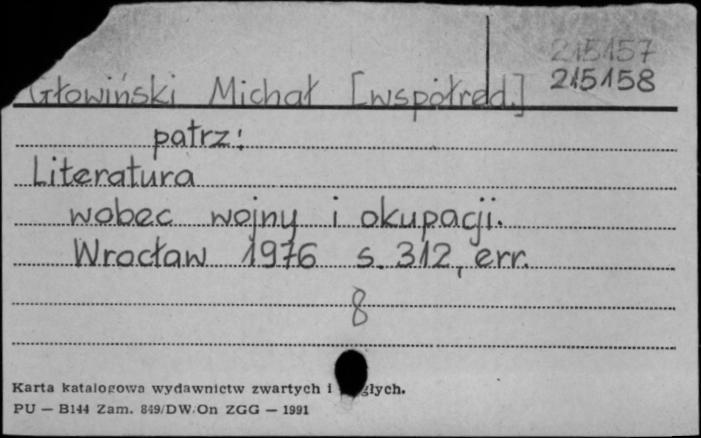 215157
Głowiński Michał [współred.] 215158
patrz:
Literatura
wobec wojny i okupacji.
Wrocław 1976 s. 312, err.
8
Karta katalogowa wydawnictw zwartych i
PU — B144 Zam. 849/DW/On ZGG — 1991